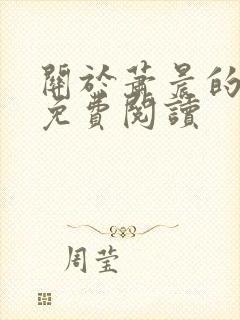 關於蕭晨的
免費閱讀
周莹